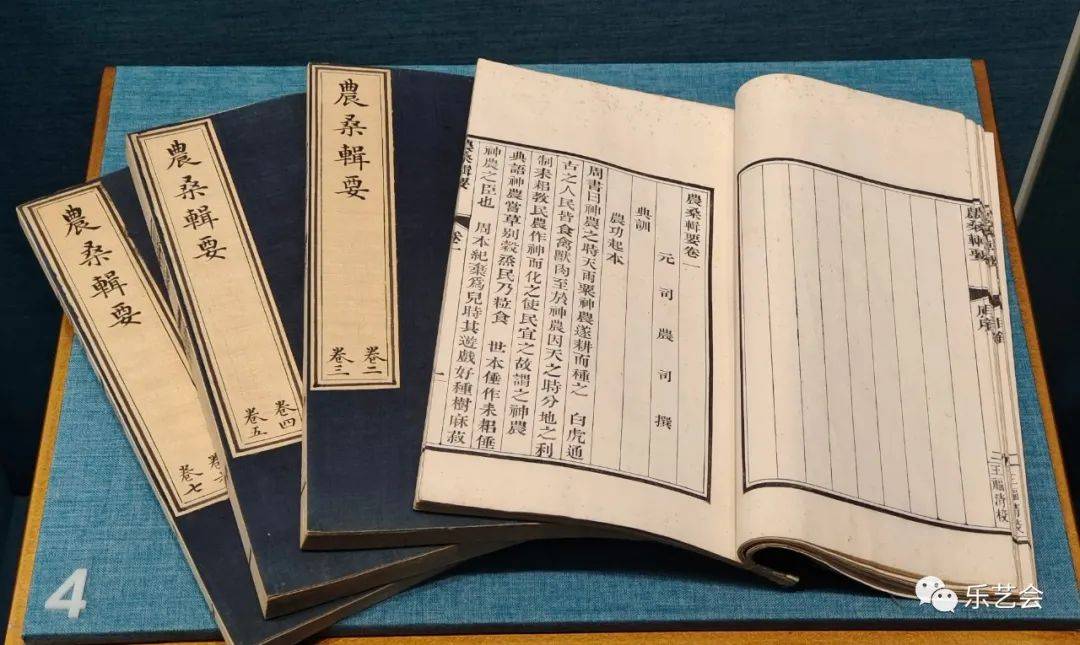 農桑輯要卷一
元司農司撰
典訓
農功起本
周書曰神農之時天雨粟神農遂耕而種之 白虎通
古之人民皆食禽獸肉至於神農因天之時分地之利
制耒耜教民農作神而化之使民宜之故謂之神農
典語神農嘗草別穀烝民乃粒食 世本倕作耒耜倕
神農之臣也 周本紀棄為兒時其遊戲好種樹麻菽
農桑輯要 卷一 一
農桑輯要
卷二
卷三
農桑輯要
卷四
卷五
農桑輯要
卷六
卷七
4
乐艺会